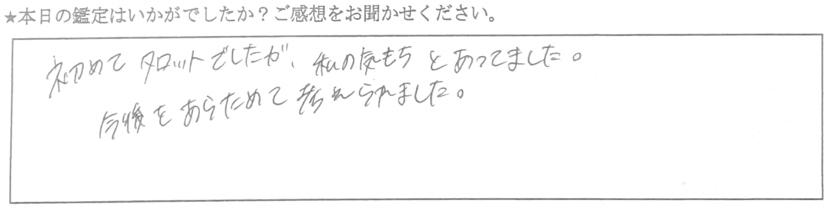 ★本日の鑑定はいかがでしたか？ご感想をお聞かせください。
初めて タロットでしたが、私の気もち とあってました。
今後を あらためて 考えられました。